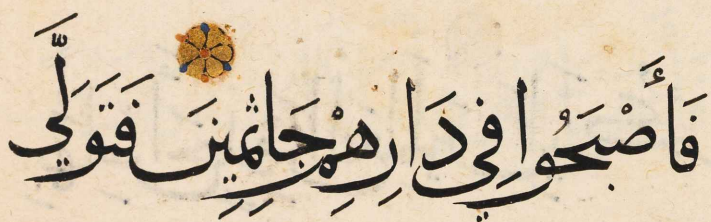 فَأَصْبَحُوا فِي دَارِهِمْ جَاثِمِينَ فَتَوَلَّى